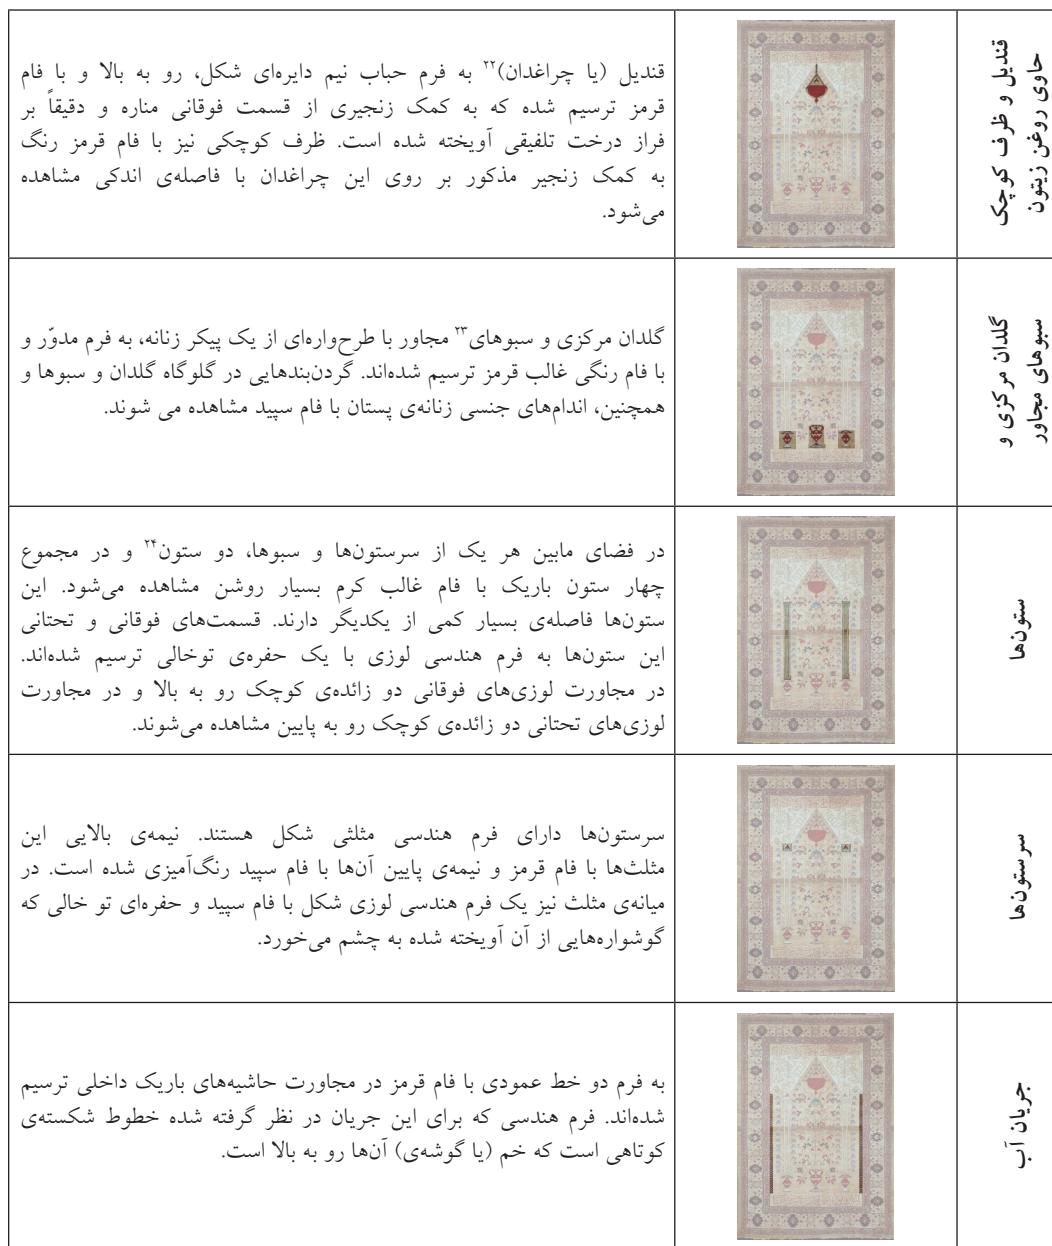 قندیل و ظرف کوچک
حاوی روغن زیتون
قندیل (یا چراغدان)۲۲ به فرم حباب نیم دایره‌ای شکل، رو به بالا و با فام
قرمز ترسیم شده که به کمک زنجیری از قسمت فوقانی مناره و دقیقاً بر
فراز درخت تلفیقی آویخته شده است. ظرف کوچکی نیز با فام قرمز رنگ
به کمک زنجیر مذکور بر روی این چراغدان با فاصله‌ی اندکی مشاهده
می‌شود.
گلدان مرکزی و
سبوهای مجاور
گلدان مرکزی و سبوهای۲۳ مجاور با طرح‌واره‌ای از یک پیکر زنانه، به فرم مدوّر و
با فام رنگی غالب قرمز ترسیم شده‌اند. گردن‌بندهایی در گلوگاه گلدان و سبوها و
همچنین، اندام‌های جنسی زنانه‌ی پستان با فام سپید مشاهده می شوند.
ستون‌ها
در فضای مابین هر یک از سرستون‌ها و سبوها، دو ستون۲۴ و در مجموع
چهار ستون باریک با فام غالب کرم بسیار روشن مشاهده می‌شود. این
ستون‌ها فاصله‌ی بسیار کمی از یکدیگر دارند. قسمت‌های فوقانی و تحتانی
این ستون‌ها به فرم هندسی لوزی با یک حفره‌ی توخالی ترسیم شده‌اند.
در مجاورت لوزی‌های فوقانی دو زائده‌ی کوچک رو به بالا و در مجاورت
لوزی‌های تحتانی دو زائده‌ی کوچک رو به پایین مشاهده می‌شوند.
سرستون‌ها
سرستون‌ها دارای فرم هندسی مثلثی شکل هستند. نیمه‌ی بالایی این
مثلث‌ها با فام قرمز و نیمه‌ی پایین آن‌ها با فام سپید رنگ‌آمیزی شده است. در
میانه‌ی مثلث نیز یک فرم هندسی لوزی شکل با فام سپید و حفره‌ای تو خالی که
گوشواره‌هایی از آن آویخته شده به چشم می‌خورد.
جریان آب
به فرم دو خط عمودی با فام قرمز در مجاورت حاشیه‌های باریک داخلی ترسیم
شده‌اند. فرم هندسی که برای این جریان در نظر گرفته شده خطوط شکسته‌ی
کوتاهی است که خم (یا گوشه‌ی) آن‌ها رو به بالا است.